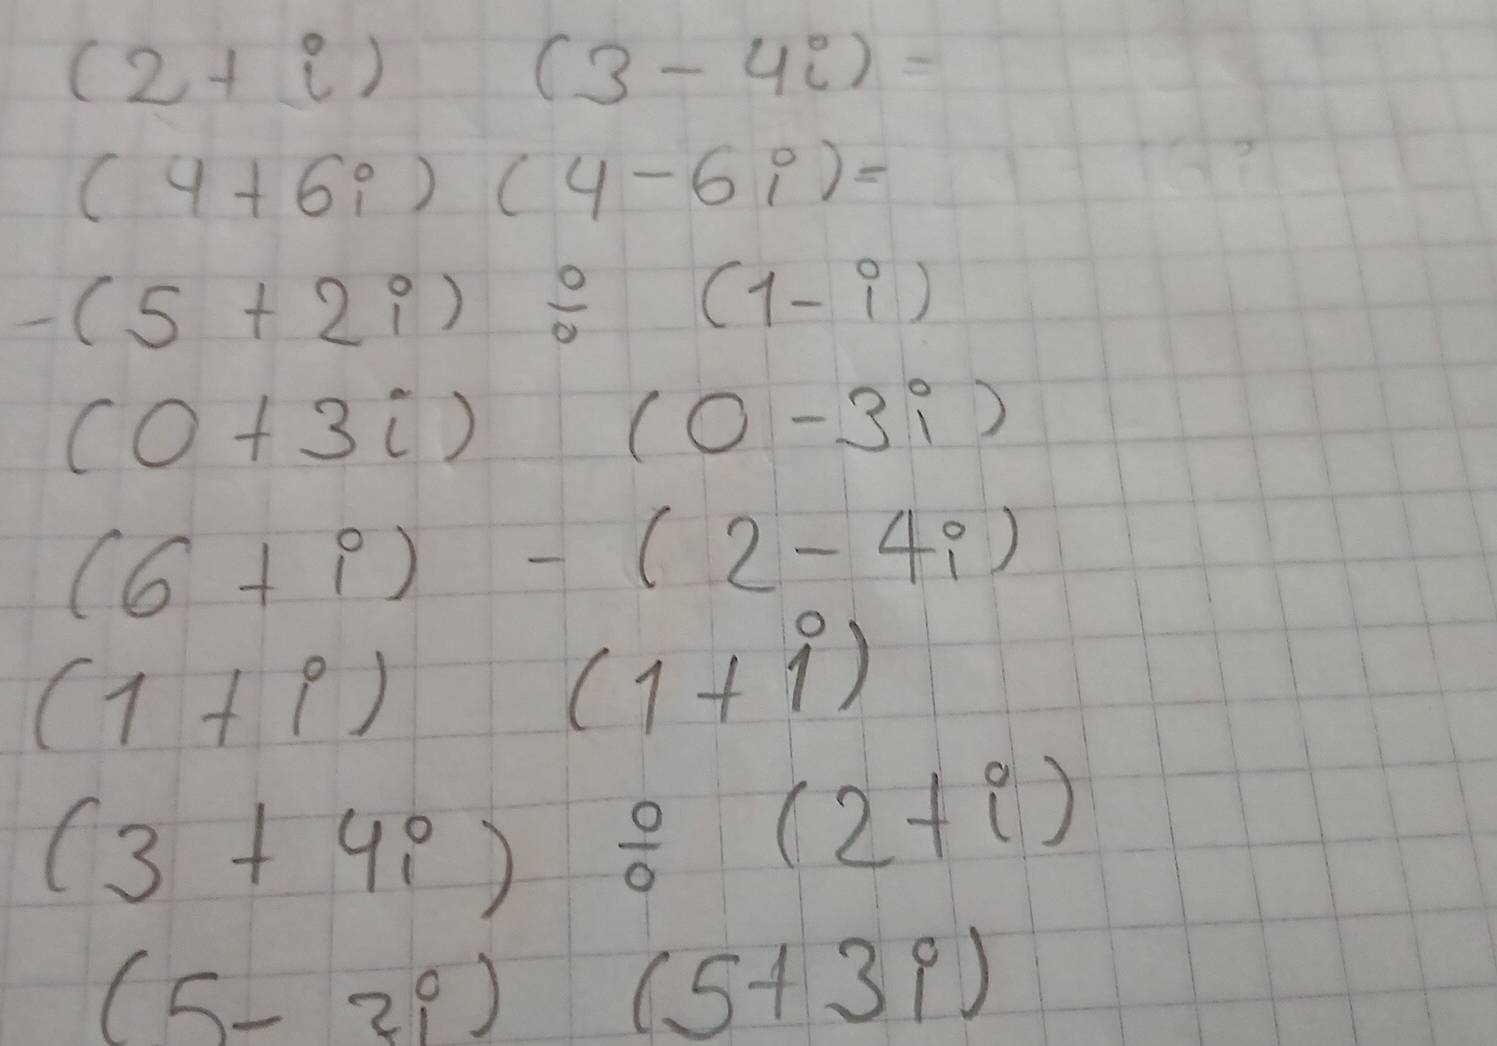 (2 + i) (3 - 4i) =
(4 + 6i) (4 - 6i) =
-(5 + 2i) ÷ (1 - i)
(0 + 3i) (0 - 3i)
(6 + i) - (2 - 4i)
(1 + i) (1 + i)
(3 + 4i) ÷ (2 + i)
(5 - i) (5 + 3i)